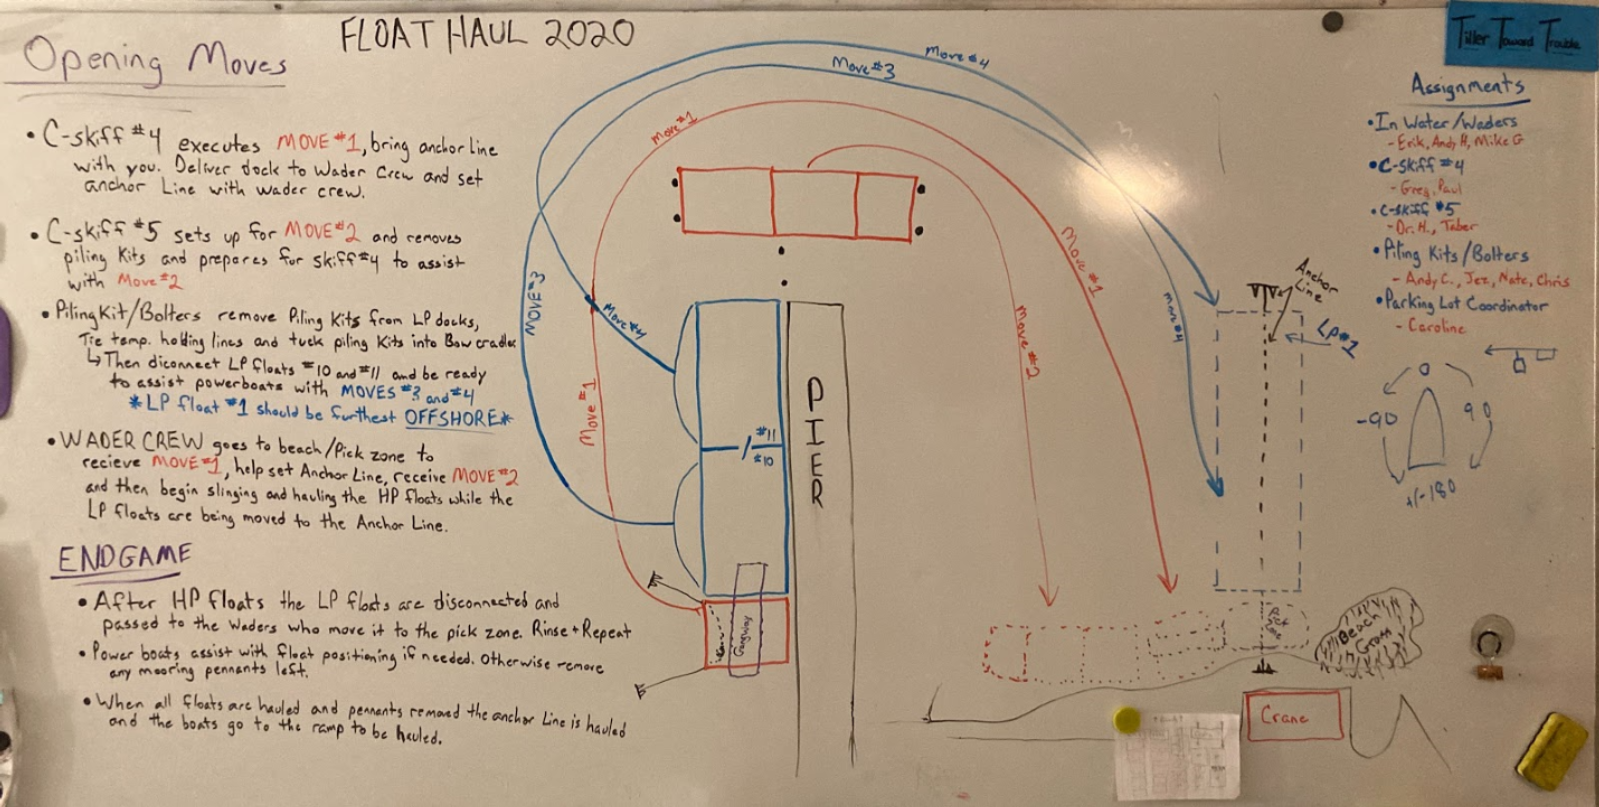 FLOAT HAUL 2020
Opening Moves
• C-skiff #4 executes MOVE #1, bring anchor line
with you. Deliver dock to Wader Crew and set
anchor Line with wader crew.
• C-skiff #5 sets up for MOVE #2 and removes
piling Kits and prepares for skiff #4 to assist
with Move #2
• Piling Kit/Bolters remove Piling Kits from LP docks,
Tie temp. holding lines and tuck piling Kits into Bow cradles
↳ Then diconnect LP floats #10 and #11 and be ready
to assist powerboats with MOVES #3 and #4
*LP float #1 should be furthest OFFSHORE*
• WADER CREW goes to beach/Pick zone to
recieve MOVE #1, help set Anchor Line, receive MOVE #2
and then begin slinging and hauling the HP floats while the
LP floats are being moved to the Anchor Line.
ENDGAME
• After HP floats the LP floats are disconnected and
passed to the Waders who move it to the pick zone. Rinse + Repeat
• Power boats assist with float positioning if needed. Otherwise remove
any mooring pennants left.
• When all floats are hauled and pennants removed the anchor Line is hauled
and the boats go to the ramp to be hauled.
Move #4
Move #3
Move #1
MOVE #3
Move #4
Move #1
#11
#10
PIER
Gangway
Move #1
Move #2
Move #4
Anchor
Line
LP #1
Pick
Zone
Beach
Grass
Crane
Tiller Toward Trouble
Assignments
• In Water/Waders
- Erik, Andy H, Mike G
• C-skiff #4
- Greg, Paul
• C-skiff #5
- Dr. H., Taber
• Piling Kits/Bolters
- Andy C., Jez, Nate, Chris
• Parking Lot Coordinator
- Caroline
0
-90
90
+/-180